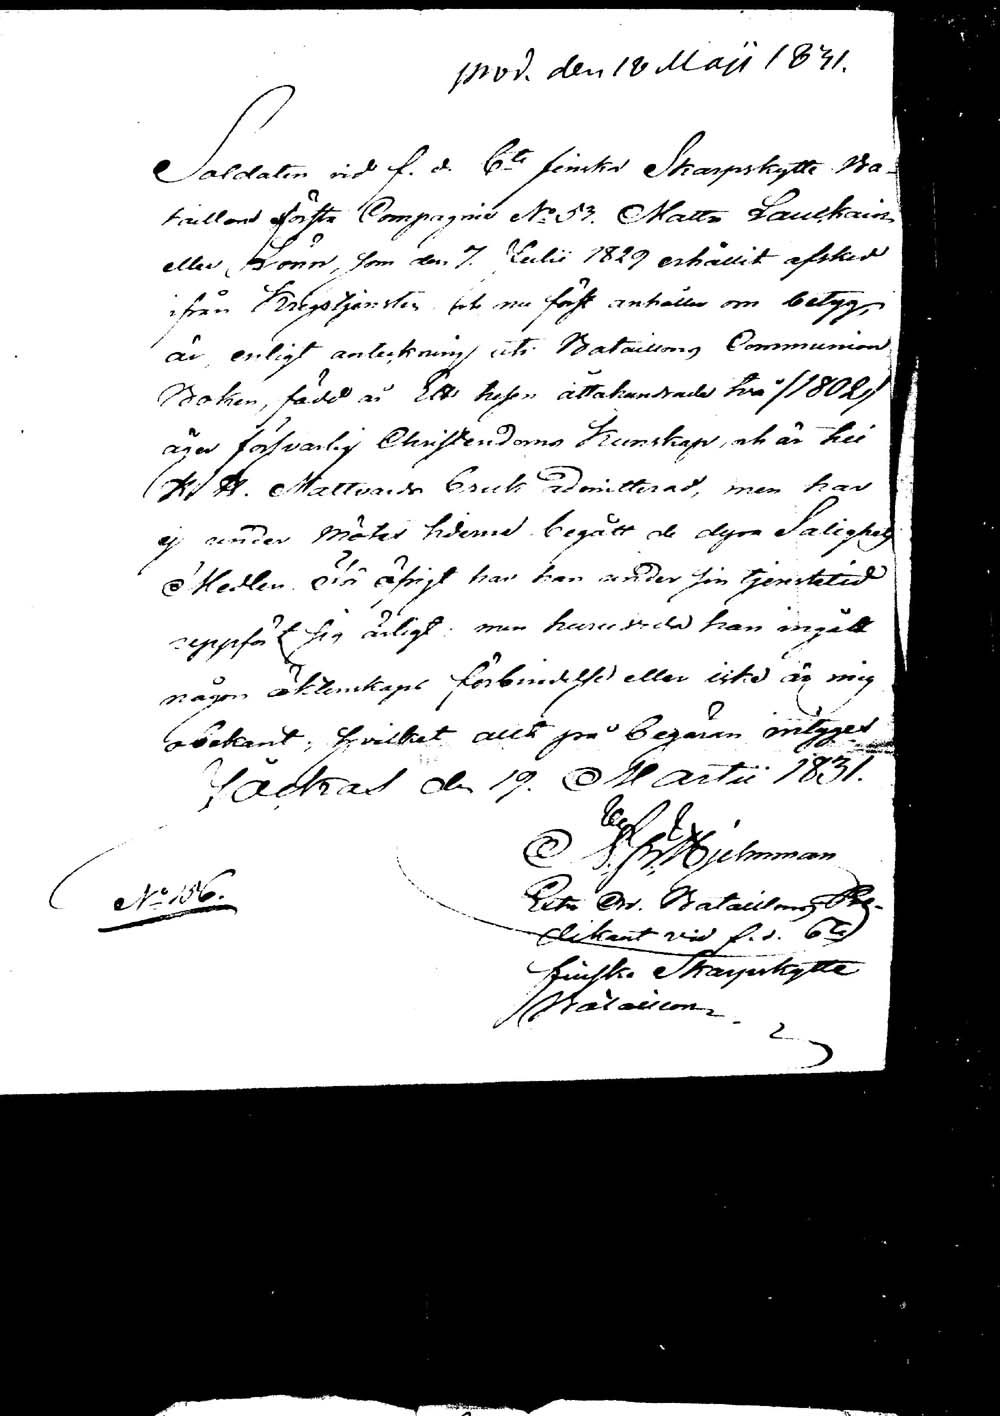 prod. den 18 Maji 1831.
Soldaten vid f. d. 6te finska Skarpskytte Ba-
taillons första Compagnie No 53. Matts Laukain
eller Lönn, som den 7. Julii 1829 erhållit afsked
ifrån Krigstjensten och nu först anhåller om betyg,
är, enligt anteckning uti Bataillons Communion
Boken, född år Ett tusen åttahundrade två /1802/
äger försvarlig Christendoms Kunskap, och är till
H. H. Nattvards bruk admitterad, men har
ej under möters tiderne begått de dyra Salighets
Medlen. I öfrigt har han under sin tjenstetid
uppfört sig ärligt; men huruvida han ingått
någon äktenskaps förbindelse eller icke är mig
obekant; hvilket allt på begäran intygas
den 19. Martii 1831.
Hjelmman
Extr Or. Bataillons Pre-
dikant vid f. d. 6te
finska Skarpskytte
Bataillon
No 156.